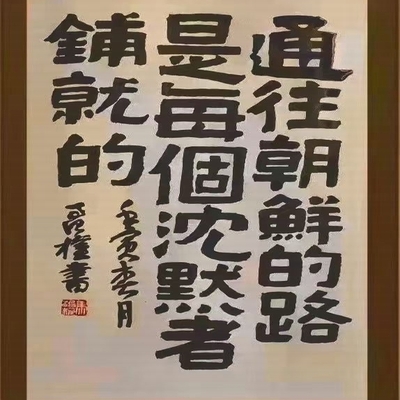 通往朝鮮的路
是每個沈默者
鋪就的
壬寅春月
書